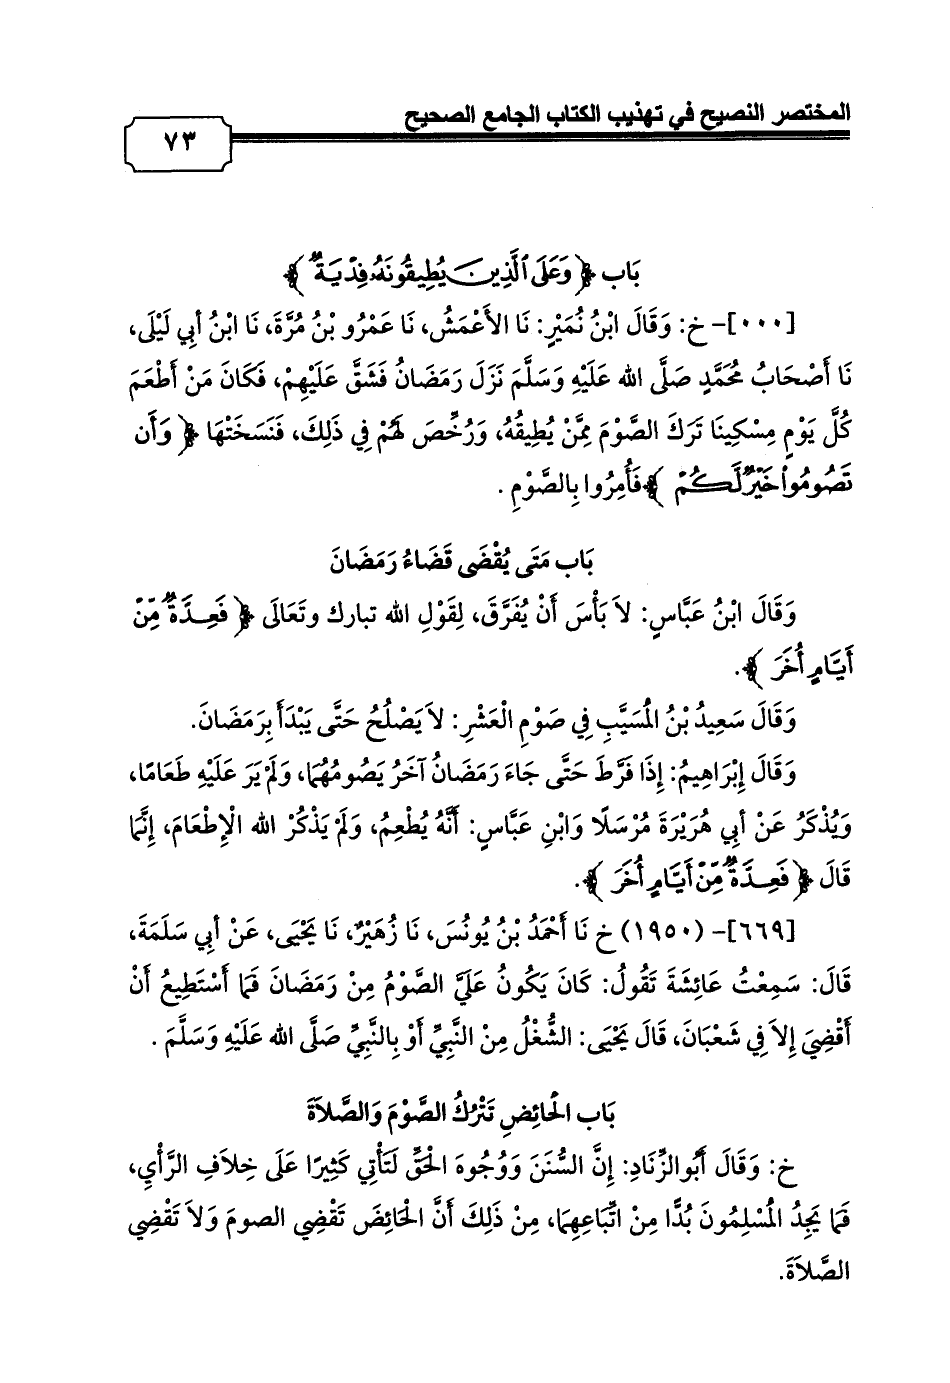 المختصر النصيح في تهذيب الكتاب الجامع الصحيح
٧٣
بَاب ﴿ وَعَلَى ٱلَّذِينَ يُطِيقُونَهُۥ فِدْيَةٌ ﴾
[٠٠٠]- خ: وَقَالَ ابْنُ نُمَيْرٍ: نَا الأَعْمَشُ، نَا عَمْرُو بْنُ مُرَّةَ، نَا ابْنُ أبِي لَيْلَى،
نَا أصْحَابُ مُحَمَّدٍ صَلَّى الله عَلَيْهِ وَسَلَّمَ نَزَلَ رَمَضَانُ فَشَقَّ عَلَيْهِمْ، فَكَانَ مَنْ أطْعَمَ
كُلَّ يَوْمٍ مِسْكِينَا تَرَكَ الصَّوْمَ مِمَّنْ يُطِيقُهُ، وَرُخِّصَ لَهُمْ فِي ذَلِكَ، فَنَسَخَتْهَا ﴿ وَأَن
تَصُومُواْ خَيْرٌ لَّكُمْ ﴾ فَأُمِرُوا بِالصَّوْمِ .
بَاب مَتَى يُقْضَى قَضَاءُ رَمَضَانَ
وَقَالَ ابْنُ عَبَّاسٍ: لاَ بَأْسَ أَنْ يُفَرَّقَ، لِقَوْلِ الله تبارك وتَعَالَى ﴿ فَعِدَّةٌ مِّنْ
أَيَّامٍ أُخَرَ ﴾.
وَقَالَ سَعِيدُ بْنُ المُسَيَّبِ فِي صَوْمِ الْعَشْرِ: لاَ يَصْلُحُ حَتَّى يَبْدَأَ بِرَمَضَانَ.
وَقَالَ إِبْرَاهِيمُ: إِذَا فَرَّطَ حَتَّى جَاءَ رَمَضَانُ آخَرُ يَصُومُهُمَا، وَلَمْ يَرَ عَلَيْهِ طَعَامًا،
وَيُذْكَرُ عَنْ أبِي هُرَيْرَةَ مُرْسَلًا وَابْنِ عَبَّاسٍ: أَنَّهُ يُطْعِمُ، وَلَمْ يَذْكُرْ الله الإِطْعَامَ، إِنَّمَا
قَالَ ﴿ فَعِدَّةٌ مِّنْ أَيَّامٍ أُخَرَ ﴾.
[٦٦٩]- (١٩٥٠) خ نَا أَحْمَدُ بْنُ يُونُسَ، نَا زُهَيْرٌ، نَا يَحْيَى، عَنْ أبِي سَلَمَةَ،
قَالَ: سَمِعْتُ عَائِشَةَ تَقُولُ: كَانَ يَكُونُ عَلَيَّ الصَّوْمُ مِنْ رَمَضَانَ فَمَا أَسْتَطِيعُ أَنْ
أَقْضِيَ إِلاَ فِي شَعْبَانَ، قَالَ يَحْيَى: الشُّغْلُ مِنْ النَّبِيِّ أَوْ بِالنَّبِيِّ صَلَّى الله عَلَيْهِ وَسَلَّمَ .
بَاب الحَائِضِ تَتْرُكُ الصَّوْمَ وَالصَّلاَةَ
خ: وَقَالَ أَبُوالزِّنَادِ: إِنَّ السُّنَنَ وَوُجُوهَ الحَقِّ لَتَأْتِي كَثِيرًا عَلَى خِلاَفِ الرَّأْيِ،
فَمَا يَجِدُ المُسْلِمُونَ بُدًّا مِنْ اتِّبَاعِهِمَا، مِنْ ذَلِكَ أَنَّ الحَائِضَ تَقْضِي الصومَ وَلاَ تَقْضِي
الصَّلاَةَ.